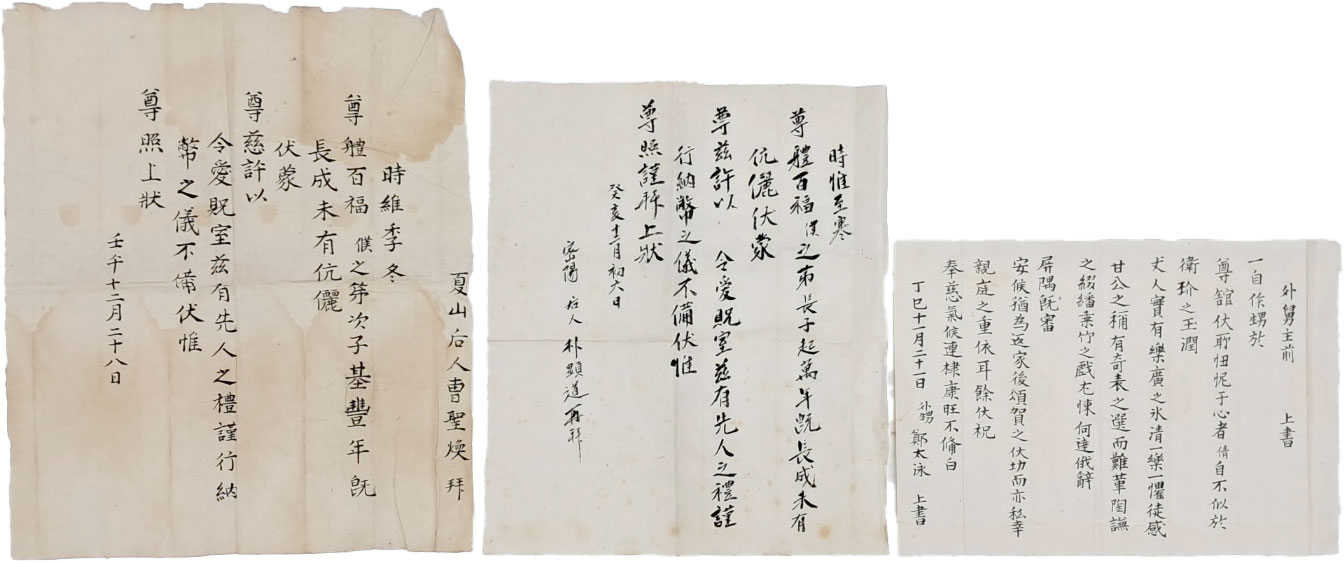 夏山后人曹聖煥 拜
時維季冬
尊體百福 僕之第次子基豐年既
長成未有伉儷
伏蒙
尊慈許以
令愛貺室茲有先人之禮謹行納
幣之儀不備伏惟
尊照上狀
壬午十二月二十八日
時惟至寒
尊體百福 僕之第長子起萬年旣長成未有
伉儷伏蒙
尊茲許以 令愛貺室茲有先人之禮謹
行納幣之儀不備伏惟
尊照謹拜上狀
癸亥十二月初六日
密陽后人朴顯道再拜
外舅主前 上書
一自作甥於
尊舘伏聆忸怩于心者倩自不似於
衛玠之玉潤
丈人實有樂廣之氷清一樂一懼徒感
甘公之稱有奇表之選而難菫陶謙
之綴繙乘竹之戲尤悚何達俄辭
屛隅旣審
安候猶為返家後頌賀之伏切而亦私幸
親庭之重依耳餘伏祝
奉慈氣候連棣康旺不備白
丁巳十一月二十一日 外甥 鄭太泳 上書